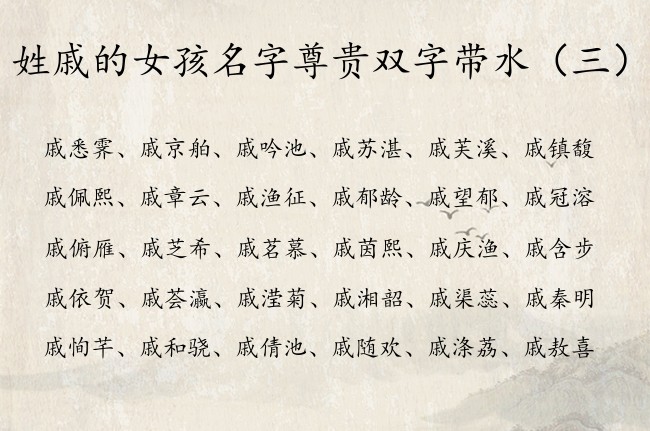 姓戚的女孩名字尊贵双字带水（三）
戚悉霁、戚京舶、戚吟池、戚苏湛、戚芙溪、戚镇馥
戚佩熙、戚章云、戚渔征、戚郁龄、戚望郁、戚冠溶
戚俯雁、戚芝希、戚茗慕、戚茵熙、戚庆渔、戚含步
戚依贺、戚荟瀛、戚滢菊、戚湘韶、戚渠蕊、戚秦明
戚恂芊、戚和骁、戚倩池、戚随欢、戚涤荔、戚敖喜